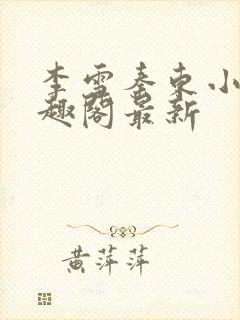 李雪秦东小
趣阁最新
黄萍萍